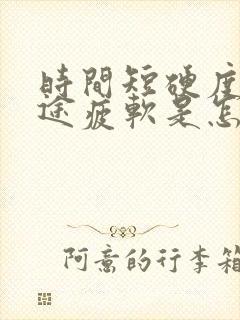 時間短硬度
途疲軟是怎
阿意的行李箱